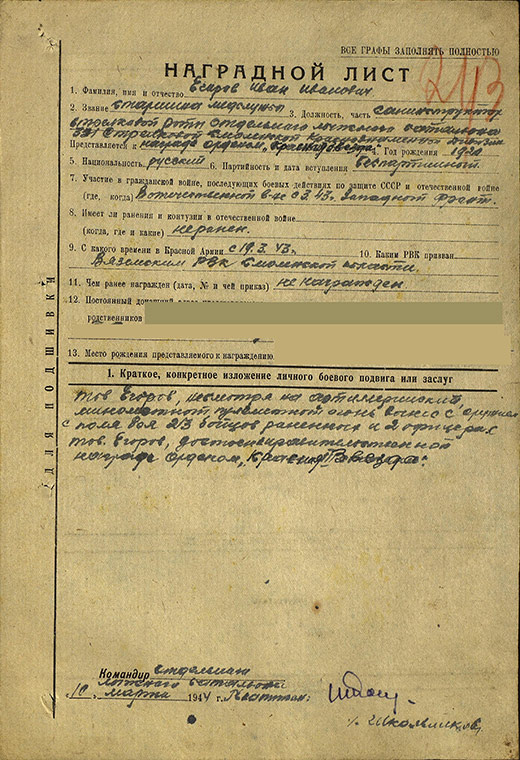 ВСЕ ГРАФЫ ЗАПОЛНЯТЬ ПОЛНОСТЬЮ
НАГРАДНОЙ ЛИСТ
1. Фамилия, имя и отчество Егоров Иван Иванович
2. Звание старшина медслужбы 3. Должность, часть санинструктор
стрелковой роты отдельного лыжного батальона
331 стрелковой Смоленской Краснознаменной дивизии
Представляется к награде орденом „Красная Звезда" 4. Год рождения
5. Национальность русский 6. Партийность и дата вступления беспартийный
7. Участие в гражданской войне, последующих боевых действиях по защите СССР и отечественной войне
(где, когда) В отечественной в-не с 3.43г. Западный фронт.
8. Имеет ли ранения и контузии в отечественной войне
(когда, где и какие) не ранен.
9. С какого времени в Красной Армии с 19.3.43г. 10. Каким РВК призван
Вяземским РВК Смоленской области.
11. Чем ранее награжден (дата, № и чей приказ) не награжден
12. Постоянный
родственников
13. Место рождения представляемого к награждению
ДЛЯ ПОДШИВКИ
1. Краткое, конкретное изложение личного боевого подвига или заслуг
тов. Егоров, несмотря на артиллерийский,
минометной пулеметной огонь вынес с оружием
с поля боя 213 бойцов раненных и 2 офицера
тов. Егоров, достоен правительственной
награда орденом „Красная Звезда".
Командир отдельного
лыжного батальона
10 марта 1944 г.
/Школьников/